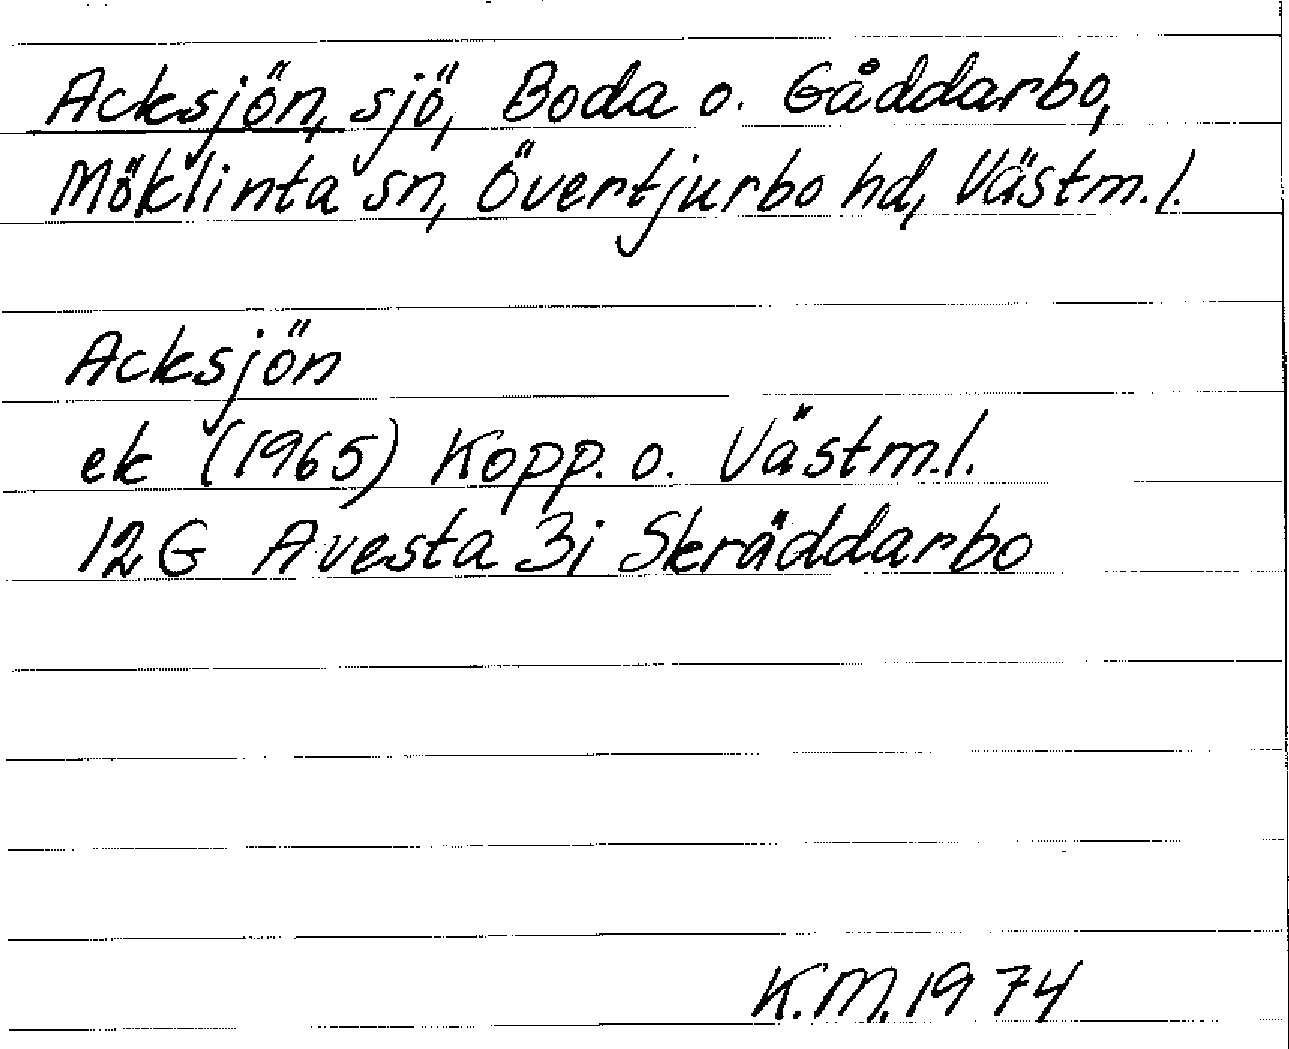 Acksjön, sjö, Boda o. Gåddarbo,
Möklinta sn, Övertjurbo hd, Västm.l.
Acksjön
ek (1965) Kopp. o. Västm.l.
12G Avesta 3i Skräddarbo
K.M. 1974